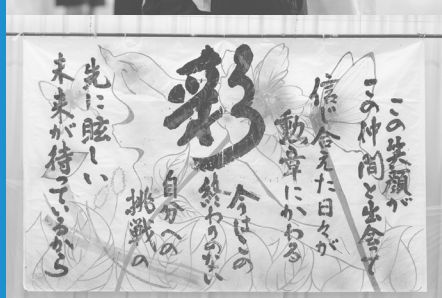 この笑顔が
この仲間と出会えて
信じ合えた日々が
勲章にかわる
彩
今はこの
終わらない
自分への
挑戦の
先に眩しい
未来が待っているから